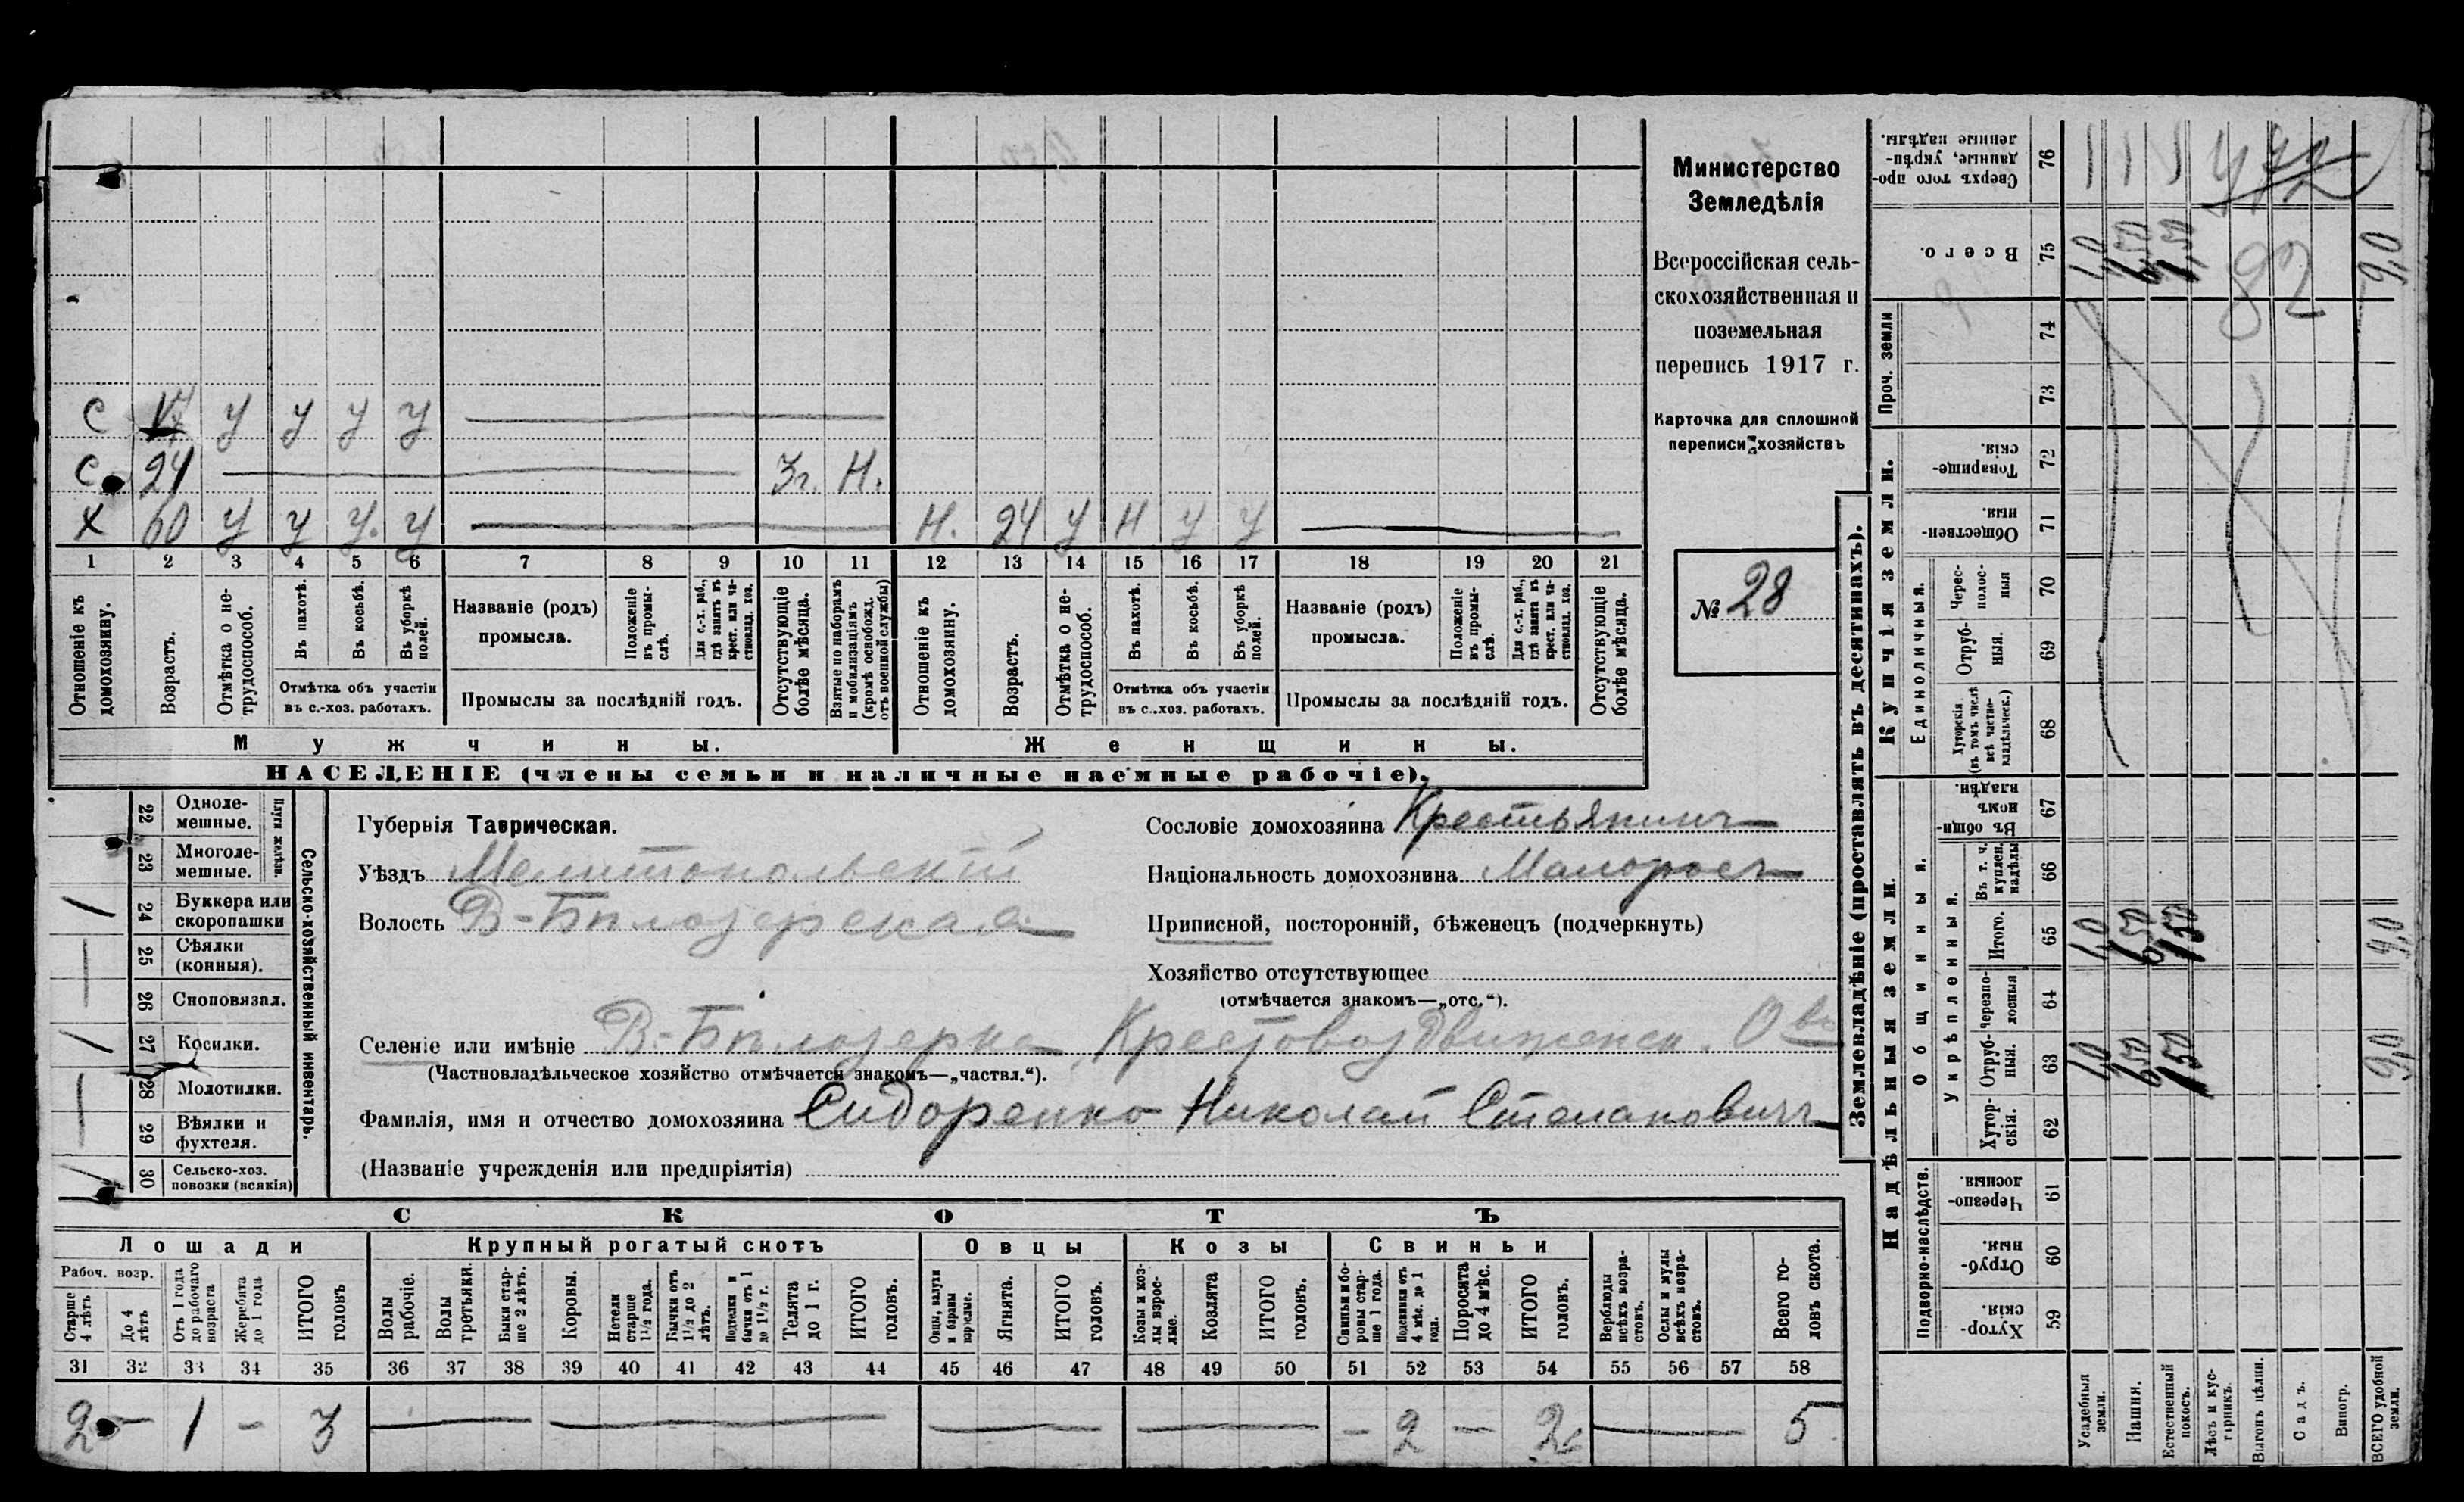 С 17 У У У У
С 24 3г. Н.
Х 60 У У У. У Н. 24 У Н У У
1 2 3 4 5 6 7 8 9 10 11 12 13 14 15 16 17 18 19 20 21
Отношеніе къ домохозяину.
Возрастъ.
Отмѣтка о нетрудоспособ.
Въ пахотѣ.
Въ косьбѣ.
Въ уборкѣ полей.
Отмѣтка объ участіи въ с.-хоз. работахъ.
Названіе (родъ) промысла.
Положеніе въ промыслѣ.
Для с.-х. раб., гдѣ занятъ въ крест. или частновлад. хоз.
Промыслы за послѣдній годъ.
Отсутствующіе болѣе мѣсяца.
Взятые по наборамъ и мобилизаціямъ (кромѣ освобожд. отъ военной службы)
Отношеніе къ домохозяину.
Возрастъ.
Отмѣтка о нетрудоспособ.
Въ пахотѣ.
Въ косьбѣ.
Въ уборкѣ полей.
Отмѣтка объ участіи въ с.-хоз. работахъ.
Названіе (родъ) промысла.
Положеніе въ промыслѣ.
Для с.-х. раб., гдѣ занятъ въ крест. или частновлад. хоз.
Промыслы за послѣдній годъ.
Отсутствующіе болѣе мѣсяца.
Мужчины. Женщины.
НАСЕЛЕНІЕ (члены семьи и наличные наемные рабочіе).
Министерство
Земледѣлія
Всероссійская сель-
скохозяйственная и
поземельная
перепись 1917 г.
Карточка для сплошной
переписи хозяйствъ
№ 28
22 Одноле-мешные.
23 Многоле-мешные.
Плуги желѣзн.
24 Буккера или скоропашки
25 Сѣялки (конныя).
26 Сноповязал.
27 Косилки.
28 Молотилки.
29 Вѣялки и фухтеля.
30 Сельско-хоз. повозки (всякія)
Сельско-хозяйственный инвентарь.
Губернія Таврическая.
Уѣздъ Мелитопольскій
Волость В-Бѣлозерская
Сословіе домохозяина Крестьянинъ
Національность домохозяина Малороссъ
Приписной, посторонній, бѣженецъ (подчеркнуть)
Хозяйство отсутствующее
(отмѣчается знакомъ—„отс.“).
Селеніе или имѣніе В.-Бѣлозерка Крестовоздвиженск. Ова
(Частновладѣльческое хозяйство отмѣчается знакомъ—„частвл.“).
Фамилія, имя и отчество домохозяина Сидоренко Николай Степановичъ
(Названіе учрежденія или предпріятія)
СКОТЪ
Лошади Крупный рогатый скотъ Овцы Козы Свиньи
Рабоч. возр.
Старше 4 лѣтъ
До 4 лѣтъ
Отъ 1 года до рабочаго возраста
Жеребята до 1 года
ИТОГО головъ
Волы рабочіе.
Волы третьяки.
Быки старше 2 лѣтъ.
Коровы.
Нетели старше 1½ года.
Бычки отъ 1½ до 2 лѣтъ.
Подтелки и бычки отъ 1 до 1½ г.
Телята до 1 г.
ИТОГО головъ.
Овцы, валухи и бараны взрослые.
Ягнята.
ИТОГО головъ.
Козы и козлы взрослые.
Козлята
ИТОГО головъ.
Свиньи и боровы старше 1 года.
Подсвинки отъ 4 мѣс. до 1 года.
Поросята до 4 мѣс.
ИТОГО головъ.
Верблюды всѣхъ возрастовъ.
Ослы и мулы всѣхъ возрастовъ.
Всего головъ скота.
31 32 33 34 35 36 37 38 39 40 41 42 43 44 45 46 47 48 49 50 51 52 53 54 55 56 57 58
2 — 1 – 3 – 2 – 2 5
Землевладѣніе (проставлять въ десятинахъ).
Сверхъ того проданные, укрѣпленные надѣлы. 76
472
Всего. 75 1,0 6,50 1,50 9,0
82
Проч. земли
74
73
Купчія земли.
Товарищескія. 72
Общественныя. 71
Единоличныя.
Чрес-полосныя 70
Отрубныя. 69
Хуторскія (въ томъ числѣ всѣ частновладѣльческ.) 68
Надѣльныя земли.
Общинныя.
Въ общинномъ владѣн. 67
Укрѣпленныя.
Въ т. ч. куплен. надѣлы 66
Итого. 65 1,0 6,50 1,50 9,0
Черезполосныя 64
Отрубныя. 63 1,0 6,50 1,50 9,0
Хуторскія. 62
Подворно-наслѣдств.
Черезполосныя. 61
Отрубныя. 60
Хуторскія. 59
Усадебныя земли.
Пашня.
Естественный покосъ.
Лѣсъ и кустарникъ.
Выгонъ цѣлин.
Садъ.
Виногр.
ВСЕГО удобной земли.